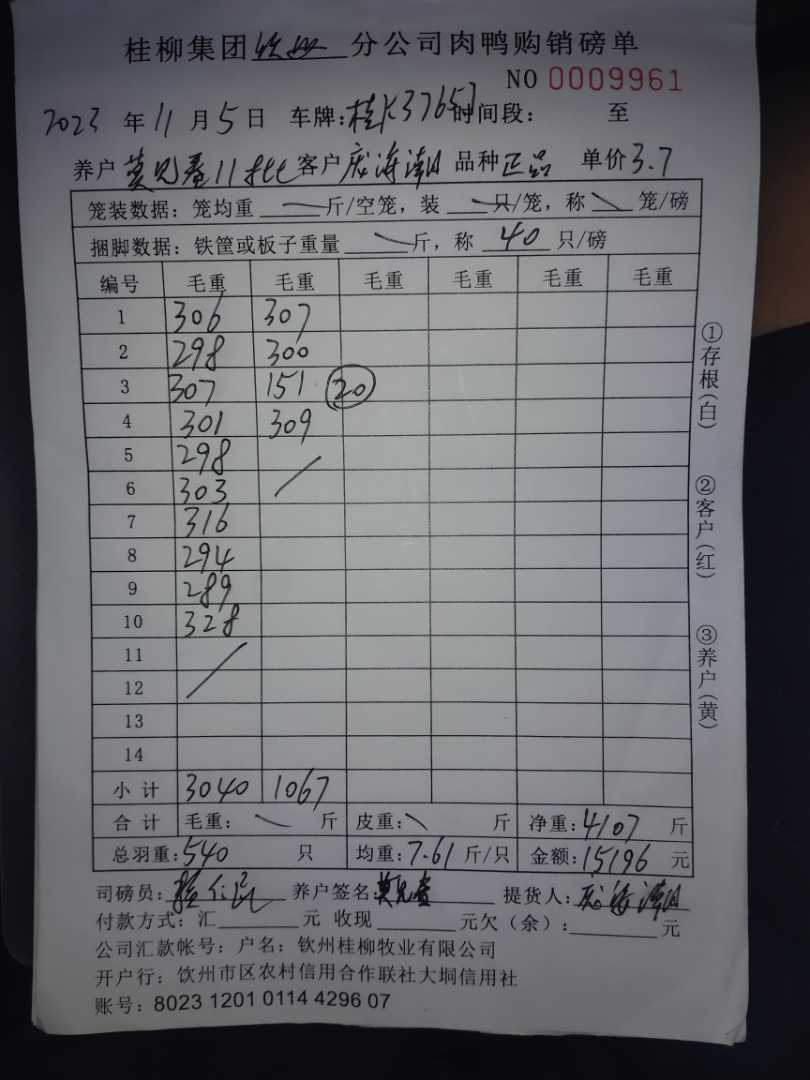 桂柳集团钦州分公司肉鸭购销磅单
NO 0009961
2023年11月5日 车牌:桂K37657 时间段: 至
养户 莫见春11批 客户 庞海潮 品种 正品 单价 3.7
笼装数据:笼均重 斤/空笼,装 只/笼,称 笼/磅
捆脚数据:铁筐或板子重量 斤,称 40 只/磅
编号 毛重 毛重 毛重 毛重 毛重 毛重
1 306 307
2 298 300
3 307 151 20
4 301 309
5 298
6 303 /
7 316
8 294
9 289
10 328
11 /
12
13
14
小计 3040 1067
合计 毛重: 斤 皮重: 斤 净重:4107 斤
总羽重:540 只 均重:7.61 斤/只 金额:15196 元
司磅员: 养户签名 莫见春 提货人:庞海潮
付款方式:汇 元 收现 元欠(余): 元
公司汇款帐号:户名:钦州桂柳牧业有限公司
开户行:钦州市区农村信用合作联社大垌信用社
账号:8023 1201 0114 4296 07
①存根(白)
②客户(红)
③养户(黄)